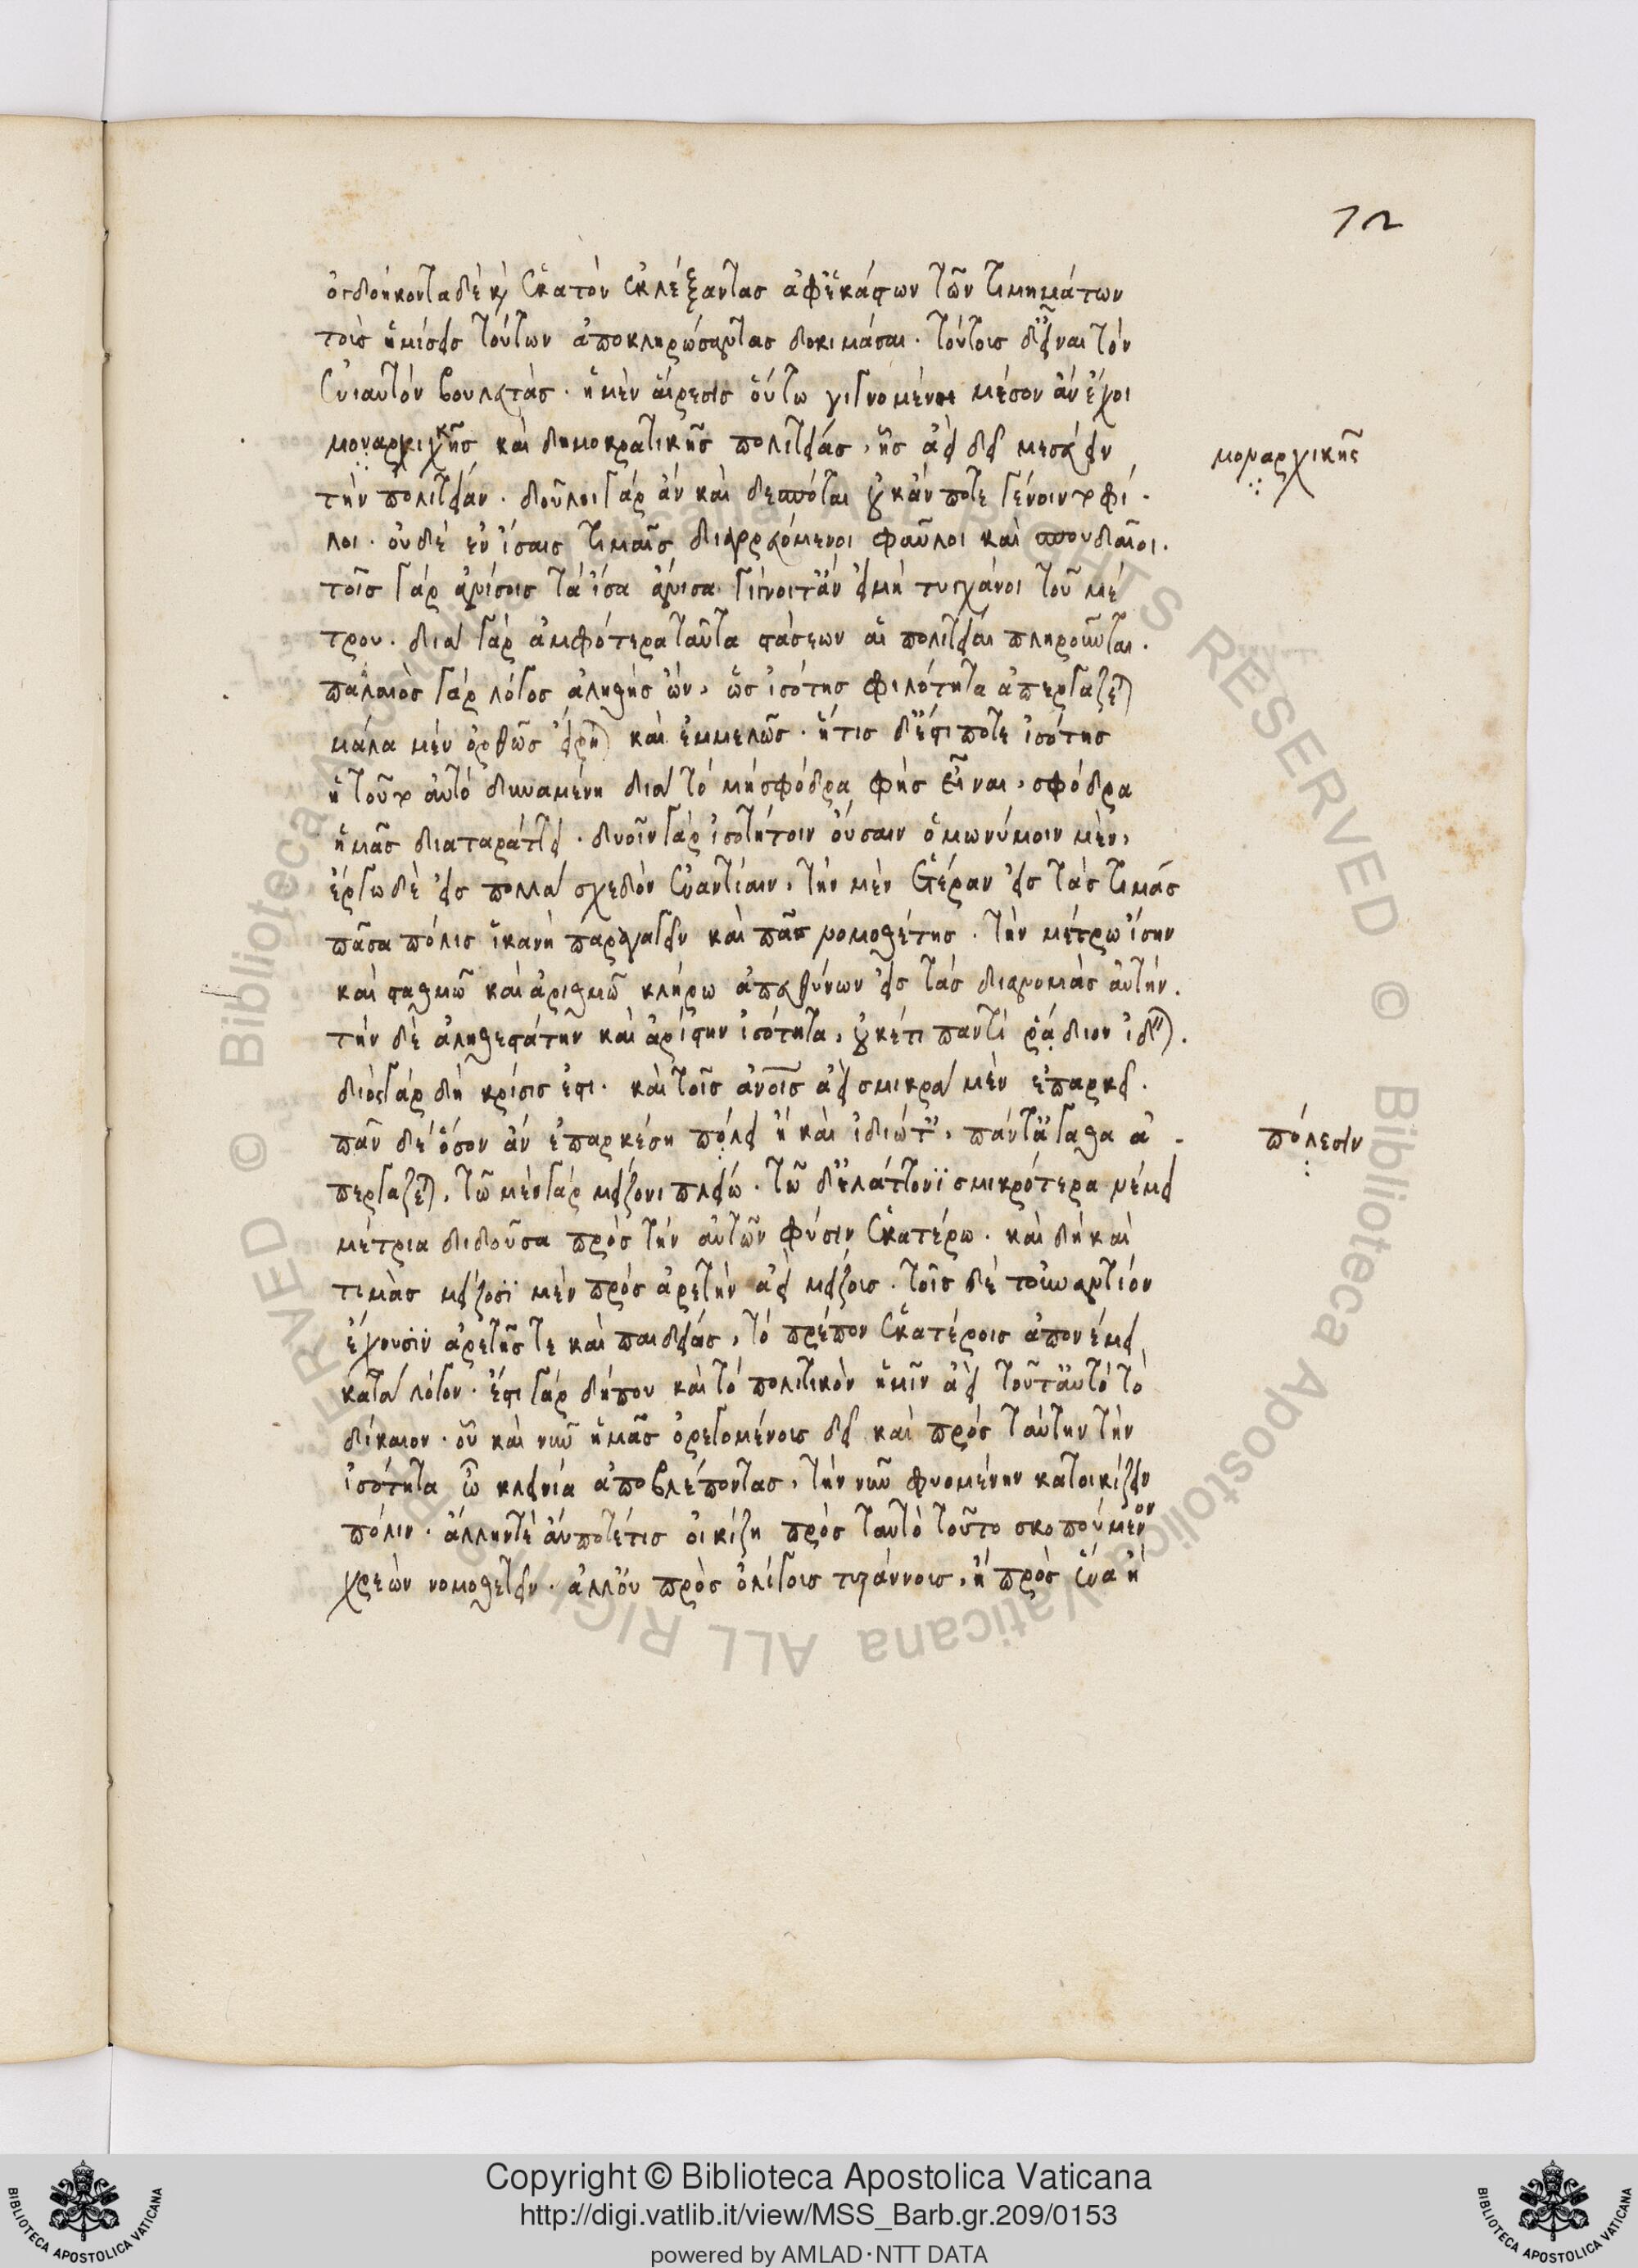 72
ὀγδοήκοντα δὲ κ̀ ἑκατὸν ἐκλέξαντας ἀφ' ἑκάστων τῶν τιμημάτων
τοὺς ἡμίσεις τούτων ἀποκληρώσαντας δοκιμάσαι. τούτους δ' εἶναι τὸν
ἐνιαυτὸν βουλευτάς. ἡ μὲν αἵρεσις οὕτω γιγνομένη μέσον ἂν ἔχοι
μοναρχικῆς καὶ δημοκρατικῆς πολιτείας, ἧς ἀεὶ δεῖ μεσεύειν
τὴν πολιτείαν. δοῦλοι γὰρ ἂν καὶ δεσπόται οὐκ ἄν ποτε γένοιντο φί-
λοι. οὐδὲ ἐν ἴσαις τιμαῖς διαγορευόμενοι φαῦλοι καὶ σπουδαῖοι.
τοῖς γὰρ ἀνίσοις τὰ ἴσα ἄνισα γίγνοιτ' ἂν εἰ μὴ τυγχάνοι τοῦ μέ
τρου. διὰ γὰρ ἀμφότερα ταῦτα στάσεων αἱ πολιτεῖαι πληροῦνται.
παλαιὸς γὰρ λόγος ἀληθὴς ὤν, ὡς ἰσότης φιλότητα ἀπεργάζεται
μάλα μὲν ὀρθῶς εἴρηται καὶ ἐμμελῶς. ἥτις δ' ἐστί ποτε ἰσότης
ἡ τοῦτο αὐτὸ δυναμένη διὰ τὸ μὴ σφόδρα φὴς εἶναι, σφόδρα
ἡμᾶς διαταράττει. δυοῖν γὰρ ἰσοτήτοιν οὔσαιν ὁμωνύμοιν μὲν,
ἔργω δὲ εἰς πολλὰ σχεδὸν ἐναντίαιν, τὴν μὲν ἑτέραν εἰς τὰς τιμὰς
πᾶσα πόλις ἱκανὴ παραγαγεῖν καὶ πᾶς νομοθέτης. τὴν μέτρω ἴσην
καὶ σταθμῶ καὶ ἀριθμῶ κλήρω ἀπευθύνων εἰς τὰς διανομὰς αὐτήν.
τὴν δὲ ἀληθεστάτην καὶ ἀρίστην ἰσότητα, οὐκέτι παντὶ ῥάδιον ἰδεῖν.
διὸς γὰρ δὴ κρίσις ἐστι. καὶ τοῖς ἀνοις ἀεὶ σμικρὰ μὲν ἐπαρκεῖ.
πᾶν δὲ ὅσον ἂν ἐπαρκέση πόλει ἢ καὶ ἰδιώταις, πάντ' ἀγαθὰ ἀ-
περγάζεται, τῶ μὲν γὰρ μείζονι πλείω. τῶ δ' ἐλάττονϊ σμικρότερα νέμει
μέτρια διδοῦσα πρὸς τὴν αὐτῶν φύσιν ἑκατέρω. καὶ δὴ καὶ
τιμὰς μείζοσϊ μὲν πρὸς ἀρετὴν ἀεὶ μείζους. τοῖς δὲ τοὐναντίον
ἔχουσϊν ἀρετῆς τε καὶ παιδείας, τὸ πρέπον ἑκατέροις ἀπονέμει
κατὰ λόγον. ἔστι γὰρ δήπου καὶ τὸ πολιτικὸν ἡμῖν ἀεὶ τοῦτ' αὐτὸ τὸ
δίκαιον. οὗ καὶ νῦν ἡμᾶς ὀρεγομένους δεῖ καὶ πρὸς ταύτην τὴν
ἰσότητα ὦ κλεινία ἀποβλέποντας, τὴν νῦν φυομένην κατοικίζειν
πόλιν. ἄλλην τὲ ἄν ποτέ τις οἰκίζη πρὸς ταυτὸ τοῦτο σκοπούμενον
χρεὼν νομοθετεῖν. ἀλλ' οὐ πρὸς ὀλίγους τυράννους, ἢ πρὸς ἕνα ἢ
μοναρχικῆς
πόλεσιν
Copyright © Biblioteca Apostolica Vaticana
http://digi.vatlib.it/view/MSS_Barb.gr.209/0153
powered by AMLAD·NTT DATA